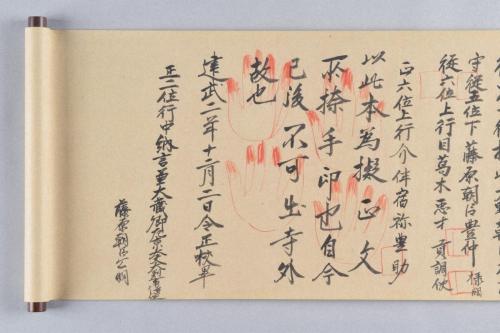 守従五位下藤原朝臣豊仲
従六位上行目葛木忠才貢調使
正六位上行介伴宿祢豊助
以此本為擬正文
所捺手印也自今
已後不可出寺外
故也
建武二年十二月二日令正校畢
正二位行中納言兼大蔵卿
藤原朝臣公明